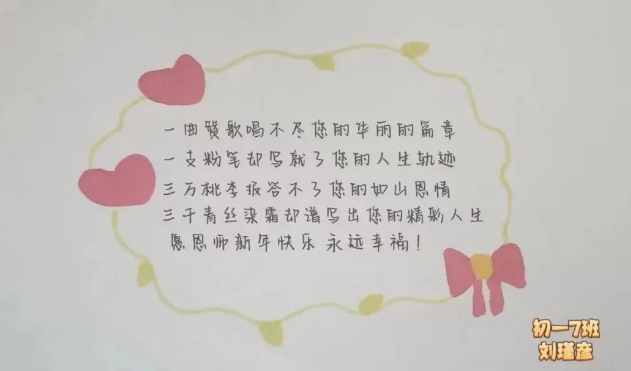 一曲赞歌唱不尽您的华丽的篇章
一支粉笔却写就了您的人生轨迹
三万桃李报答不了您的如山恩情
三千青丝染霜却谱写出您的精彩人生
愿恩师新年快乐 永远幸福！
初一7班
刘瑾彦